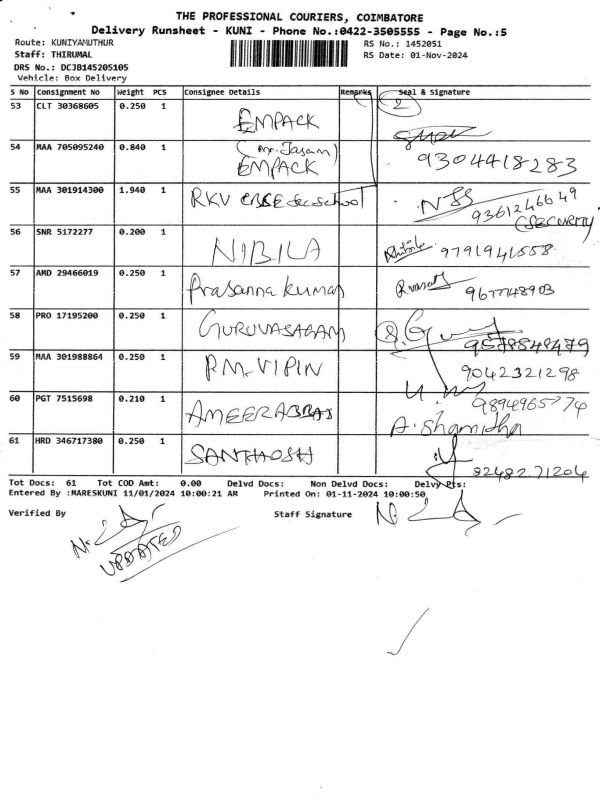 THE PROFESSIONAL COURIERS, COIMBATORE
Delivery Runsheet - KUNI - Phone No.:0422-3505555 - Page No.:5
Route: KUNIYAMUTHUR RS No.: 1452051
Staff: THIRUMAL RS Date: 01-Nov-2024
DRS No.: DCJB145205105
Vehicle: Box Delivery
S No Consignment No Weight PCS Consignee Details Remarks Seal & Signature
53 CLT 30368605 0.250 1 EMPACK 2
54 MAA 705095240 0.840 1 EMPACK 9304418283
55 MAA 301914300 1.940 1 RKV CBSE Sec School 9361246649
(SECURITY)
56 SNR 5172277 0.200 1 NIBILA 9791941558
57 AMD 29466019 0.250 1 Prasanna Kumar 9677748903
58 PRO 17195200 0.250 1 GURUVASAGAM 9578848479
59 MAA 301988864 0.250 1 P.M-VIPIN 9042321298
60 PGT 7515698 0.210 1 9894965774
A. Shamidha
61 HRD 346717380 0.250 1 SANTHOSH 8248271204
Tot Docs: 61 Tot COD Amt: 0.00 Delvd Docs: Non Delvd Docs: Delvy Pts:
Entered By :MARESKUNI 11/01/2024 10:00:21 AM Printed On: 01-11-2024 10:00:50
Verified By Staff Signature
UPDATED